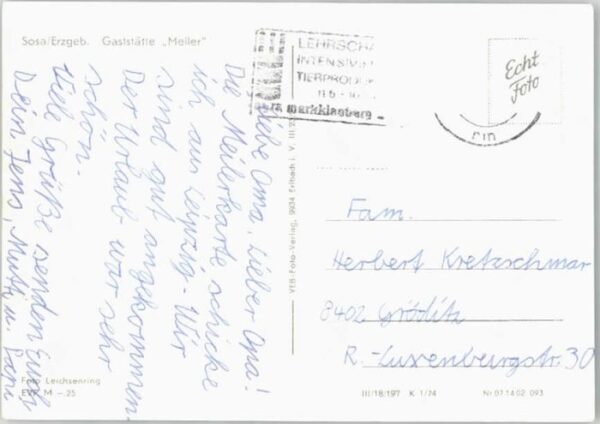 Sosa/Erzgeb. Gaststätte „Meiler"
Liebe Oma, Lieber Opa!
Die Meilerkarte schicke
ich aus Leipzig. Wir
sind gut angekommen.
Der Urlaub war sehr
schön.
Viele Grüße senden Euch
Dein Jens, Mutti u. Papi
Foto Leichsenring
EVP M –.25
VEB-Foto-Verlag, 9934 Erlbach i. V. III
LEHRSCHA
INTENSIV
TIERPRODUK
11.6 - 16
markkleeberg
Echt
Foto
Fam.
Herbert Kretzschmar
8402 Gröditz
R.-Luxenburgstr. 30
III/18/197 K 1/74 Nr 07 14 02 093